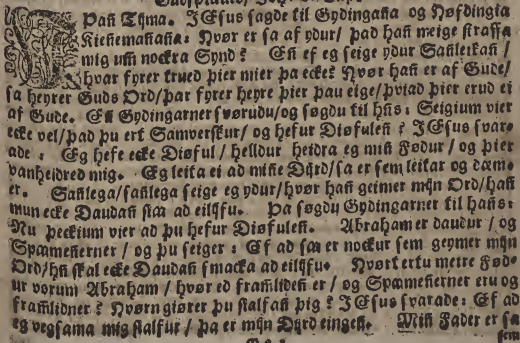 Þan̄ Tijma. JEsus sagde til Gydingan̄a og Høfdingia
Kien̄eman̄an̄a: Hvør er sa af ydur/ þad han̄ meige straffa
mig um̄ nockra Synd? En̄ ef eg seige ydur San̄leikan̄/
hvar fyrer trued þier mier þa ecke? Hvør han̄ er af Gude/
sa heyrer Guds Ord/ þar fyrer heyre þier þau eige/ þviad þier erud ei
af Gude. En̄ Gydingarner svørudu/ og søgdu til han̄s: Seigium vier
ecke vel/ þad þu ert Samverskur/ og hefur Diøfulen̄? JEsus svar-
ade: Eg hefe ecke Diøful/ helldur heidra eg min̄ Fødur/ og þier
vanheidred mig. Eg leita ei ad min̄e Dijrd/ sa er sem leitar og dæm-
er. San̄lega/ san̄lega seige eg ydur/ hvør han̄ geimer mijn Ord/ han̄
mun ecke Daudan̄ siaa ad eilijfu. Þa søgdu Gydingarner til han̄s:
Nu þeckium vier ad þu hefur Diøfulen̄. Abraham er daudur/ og
Spaamen̄erner/ og þu seiger: Ef ad saa er nockur sem geymer mijn
Ord/ hn̄ skal ecke Daudan̄ smacka ad eilijfu. Hvort ertu meire Fød-
ur vorum Abraham/ hvør ed framliden̄ er/ og Spaamen̄erner eru og
framlidner? Hvørn giører þu sialfan̄ þig? JEsus svarade: Ef ad
eg vegsama mig sialfur/ þa er mijn Dijrd eingen̄. Min̄ Fader er sa
sem